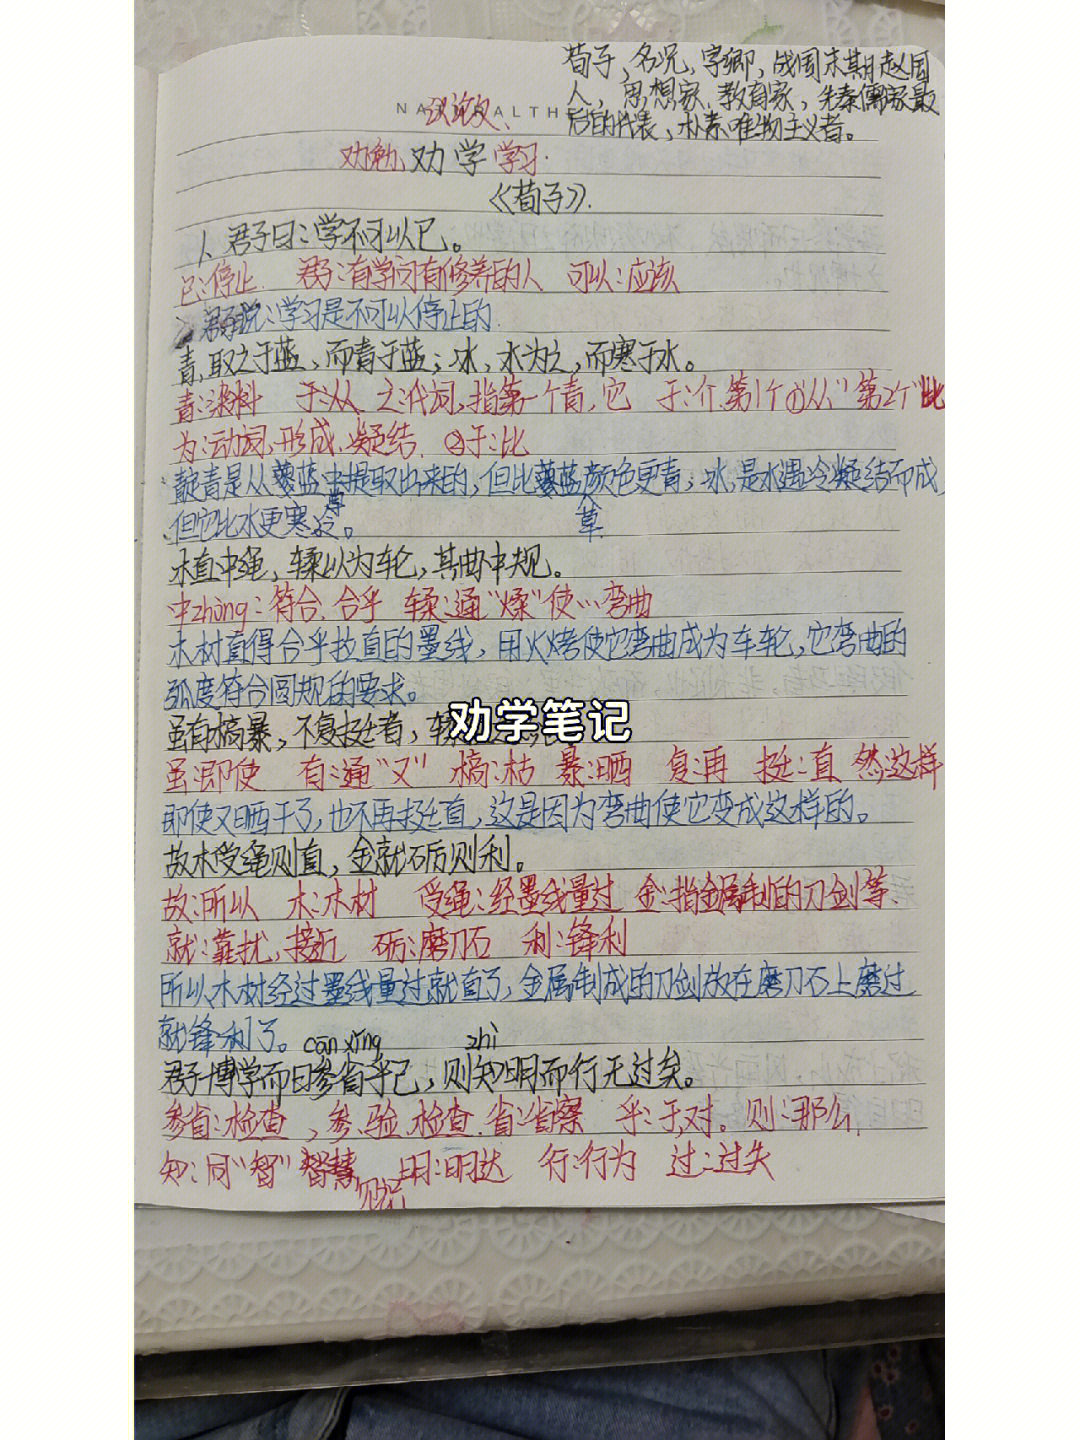 荀子，名况，字卿，战国末期赵国
人，思想家、教育家，先秦儒家最
后的代表，朴素唯物主义者。
议论文、
劝勉、劝学 学习.
《荀子》.
1、君子曰：学不可以已。
已：停止 君子：有学问有修养的人 可以：应该
君子说：学习是不可以停止的
青，取之于蓝，而青于蓝；冰，水为之，而寒于水。
青：染料 于：从 之：代词，指第一个青，它 于：介.第1个①从"第2个"比
为：动词，形成、凝结. ②于：比
靛青是从蓼蓝中提取出来的，但比蓼蓝颜色更青；冰，是水遇冷凝结而成，
草
草
但它比水更寒冷。
木直中绳，輮以为车轮，其曲中规。
中zhòng：符合.合乎 輮：通"煣"使…弯曲
木材直得合乎拉直的墨线，用火烤使它弯曲成为车轮，它弯曲的
弧度符合圆规的要求。
虽有槁暴，不复挺者，輮
劝学笔记
虽：即使 有：通"又" 槁：枯 暴：晒 复：再 挺：直 然：这样
即使又晒干了，也不再挺直，这是因为弯曲使它变成这样的。
故木受绳则直，金就砺则利。
故：所以 木：木材 受绳：经墨线量过 金：指金属制的刀剑等.
就：靠扰，接近 砺：磨刀石 利：锋利
所以木材经过墨线量过就直了，金属制成的刀剑放在磨刀石上磨过
就锋利了。
cān xǐng zhì
君子博学而日参省乎己，则知明而行无过矣。
参省：检查，参.验.检查.省：省察 乎：于，对。则：那么，
知：同"智"智慧 明：明达 行：行为 过：过失